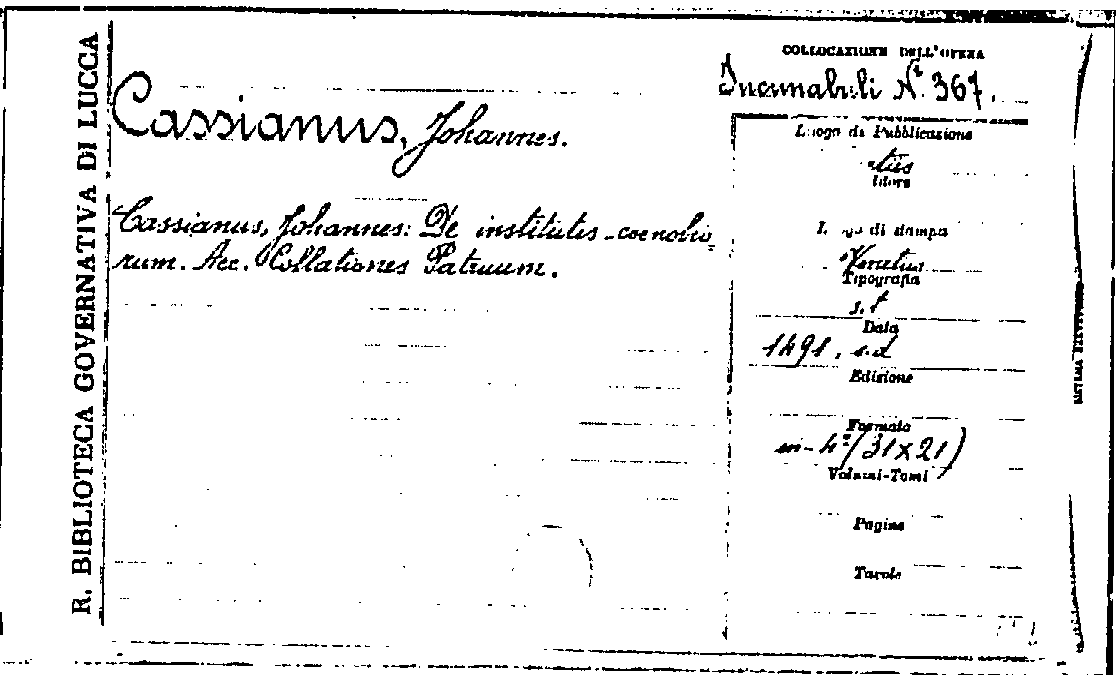 R. BIBLIOTECA GOVERNATIVA DI LUCCA
COLLOCAZIONE DELL'OPERA
Incunabuli N.º 367.
Cassianus, Johannes.
Cassianus, Johannes: De institutis coenobio
rum. Acc. Collationes Patruum.
Luogo di Pubblicazione
Luogo di stampa
Venetiis
Tipografia
s. t
Data
1491, s.d
Edizione
Formato
in-4º (31x21)
Volumi-Tomi
Pagine
Tavole